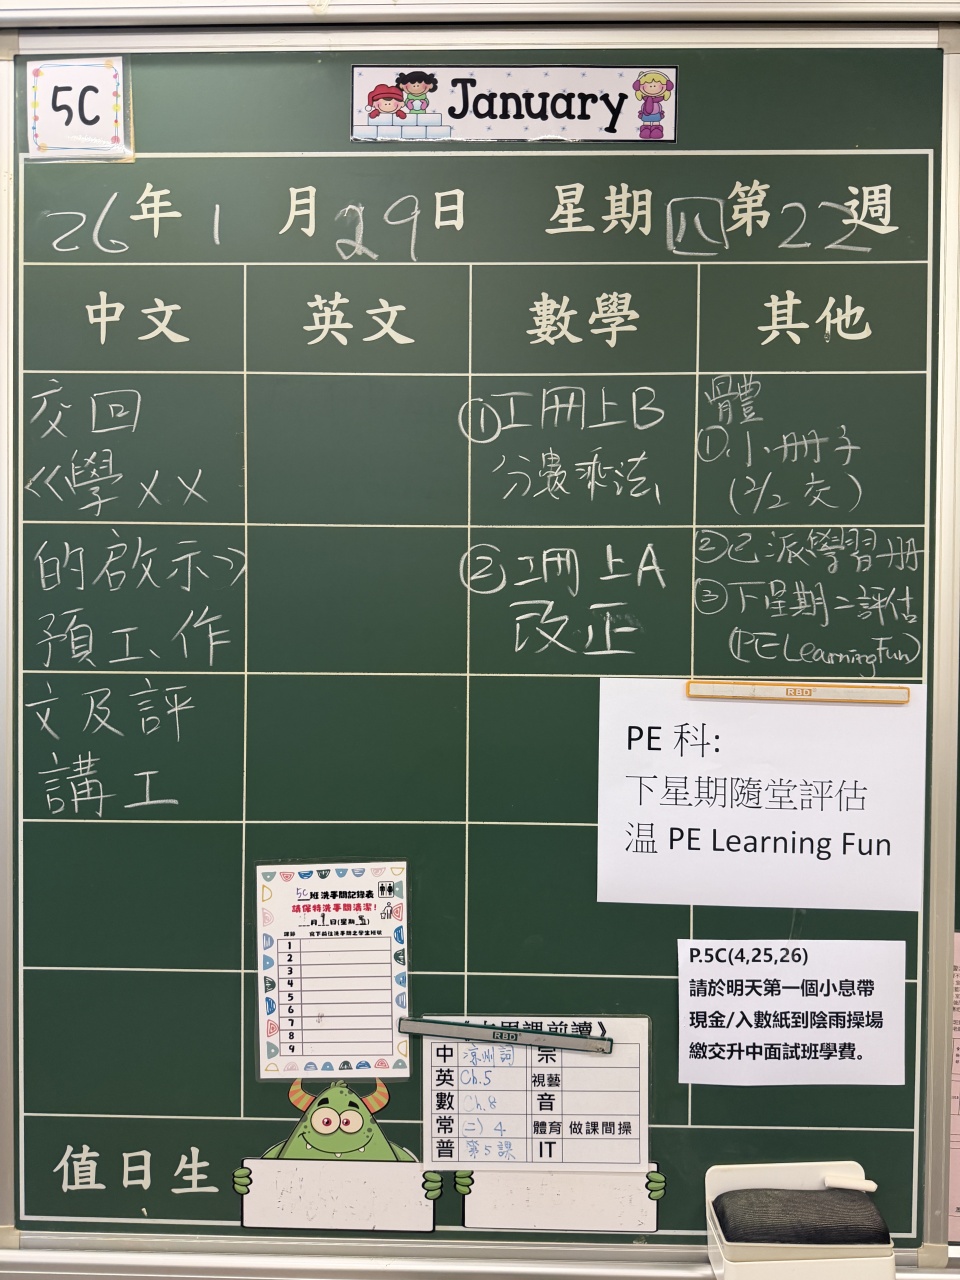 5C
January
26年1月29日 星期四第22週
中文 英文 數學 其他
交回
《學××
的啟示》
預工、作
文及評
講工
①工冊上B
分數乘法
②工冊上A
改正
體
①.小冊子
(2/2 交)
②已派學習冊
③下星期二評估
(PE Learning Fun)
RBD
PE 科:
下星期隨堂評估
温 PE Learning Fun
5C班洗手間記錄表
請保持洗手間清潔!
月9日(星期五)
課節 寫下前往洗手間之學生班號
1
2
3
4
5
6
7
8
9
P.5C(4,25,26)
請於明天第一個小息帶
現金/入數紙到陰雨操場
繳交升中面試班學費。
課前讀》
RBD
中 涼州詞 宗
英 Ch.5 視藝
數 Ch.8 音
常 (二) 4 體育 做課間操
普 第5課 IT
值日生